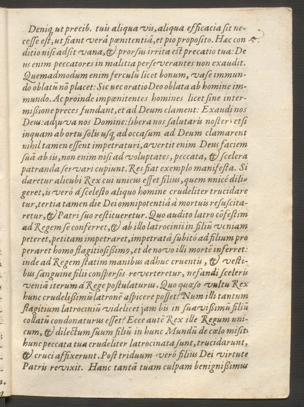 Denique ut precib. tuis aliqua vis, aliqua efficacia sit ne-
cesse est, ut fiant verâ pœnitentiâ, et pio proposito. Hac con
ditio nisi adsit vana, & prorsus irrita est precatio tua: De
us enim peccatores in malitia perseverantes non exaudit.
Quemadmodum enim ferculū licet bonum, vase immun-
do oblatū nō placet: Sic nec oratio Deo oblata ab homine im-
mundo. Ac proinde impænitentes homines licet sine inter-
missione preces fundant, et ad Deum clament: Exaudi nos
Deus: adjuva nos Domine: libera nos salutaris noster: etsi
inquam ab ortu solis usq ad occasum ad Deum clamarent
nihil tamen essent impetraturi, avertit enim Deus faciem
suā ab iis, non enim nisi ad voluptates, peccata, & scelera
patranda servari cupiunt. Res fiat exemplo manifesta. Si
daretur alicubi Rex cui unicus esset filius, quem unicè dili-
geret, is verò á scelesto aliquo homine crudeliter trucidare
tur, tertia tamen die Dei omnipotentiâ á mortuis resuscita-
retur, & Patri suo restitueretur. Quo audito latro cōfestim
ad Regem se conferret, & ab illo latrocinii in filiū veniam
peteret, petitam impetraret, impetratâ subitò ad filium pro
peraret homo flagitiosissimo, et de novo illi mortē inferret:
inde ad Regem statim manibus adhuc cruentis, & vesti-
bus sanguine filii conspersis reverteretur, nefandi sceleris
veniā iterum á Rege postulaturus. Quo quæso vultu Rex
hunc crudelissimū latronē aspicere posset? Num illi tantum
flagitium latrocinii videlicet jam bis in suavissimū filiū
collatū condonaturus esset? Ecce autē Rex ille Regum uni-
cum, & dilectum suum filiū in hunc Mundū de cœlo misit:
hunc peccata tua crudeliter latrocinata sunt, trucidarunt,
& cruci affixerunt. Post triduum verò filius Dei virtute
Patris revixit. Hanc tantā tuam culpam benignissimus